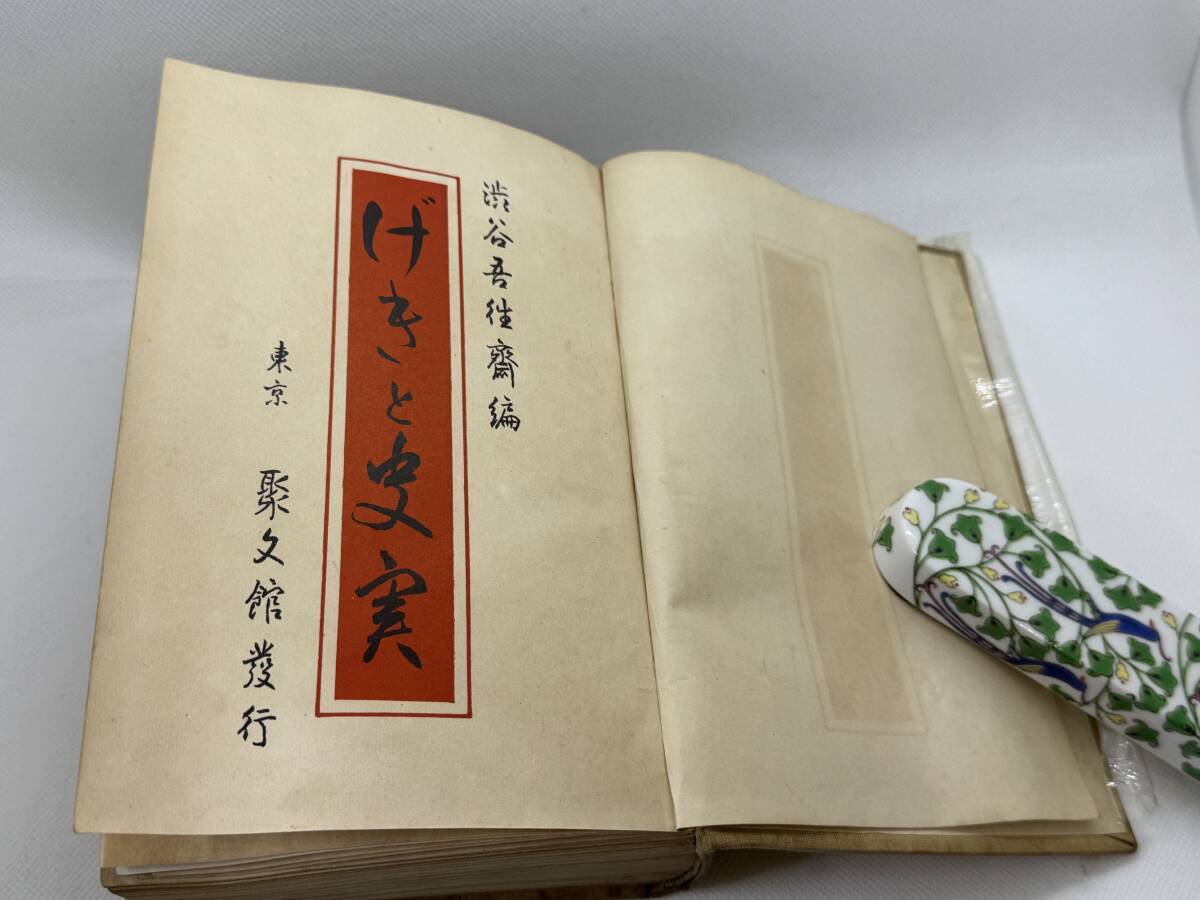 渋谷吾往齋編
げきと史実
東京 聚文館發行